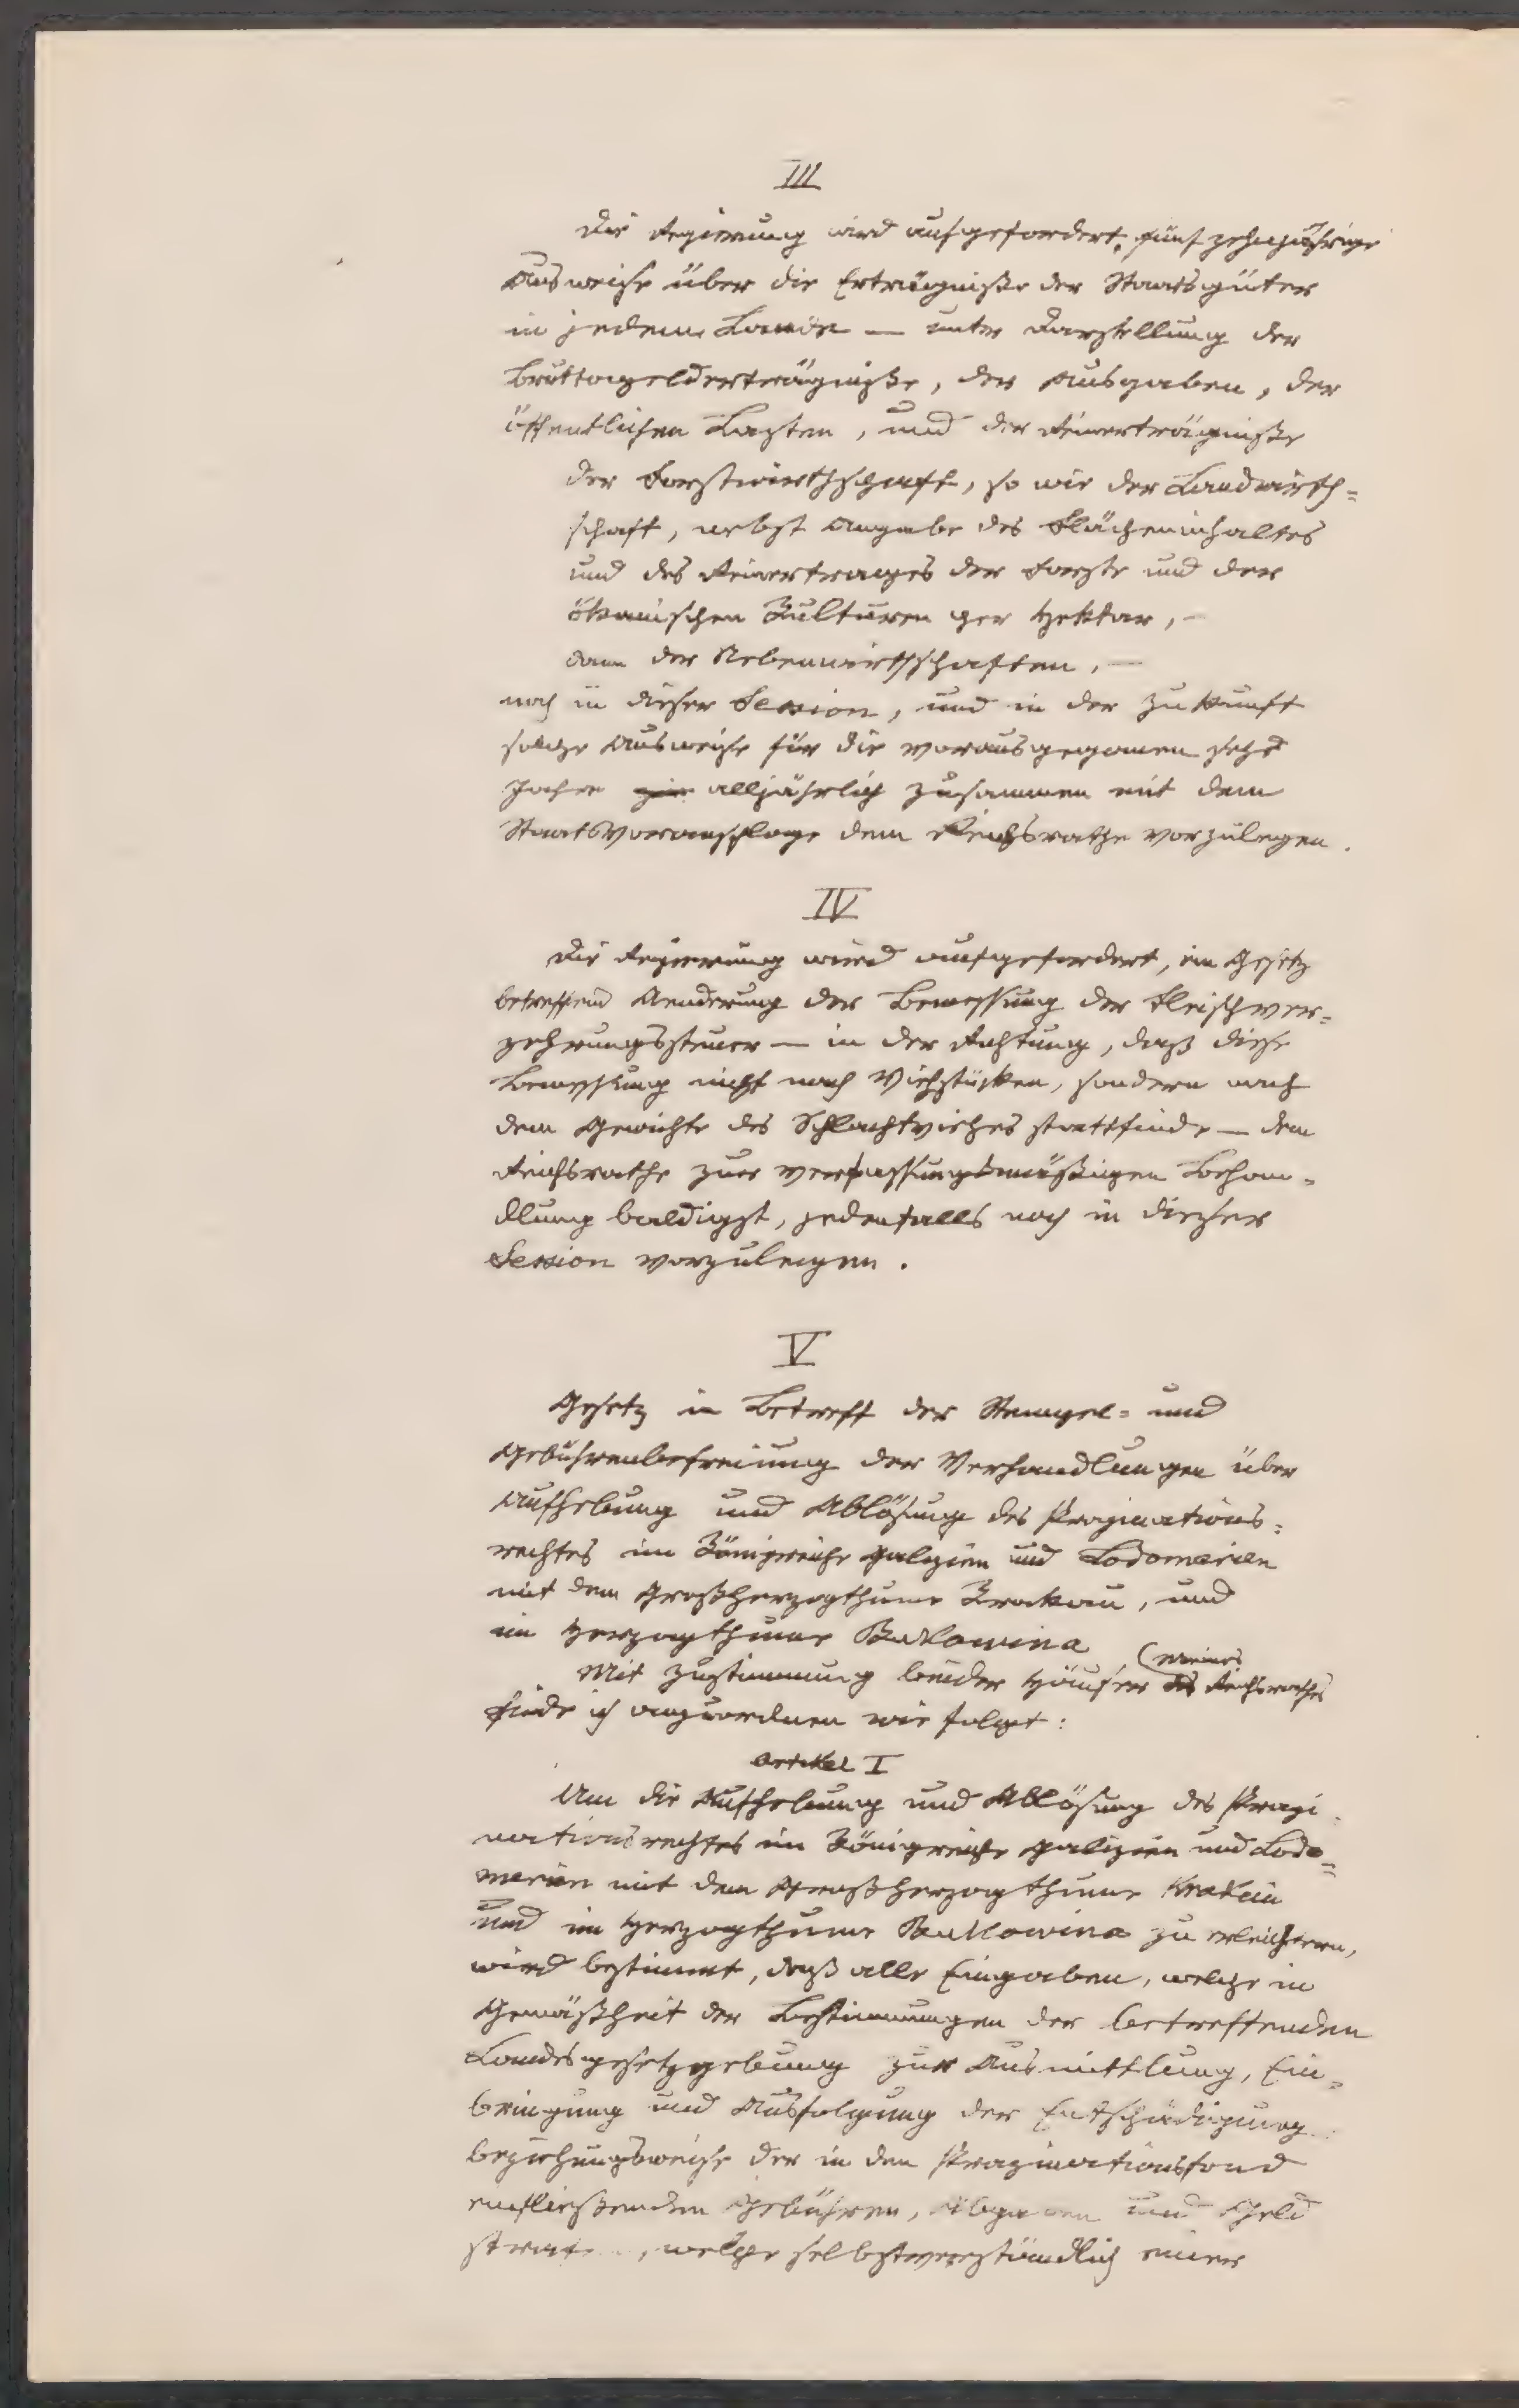 III
Die Regierung wird aufgefordert, fünfzehnjährige
Ausweise über die Erträgniße der Staatsgüter
in jedem Lande — unter Darstellung der
Bruttogelderträgniße, der Ausgaben, der
öffentlichen Lasten, und der Reinerträgniße
der Forstwirthschaft, so wie der Landwirth=
schaft, nebst Angabe des Flächeninhaltes
und des Reinertrages der Forste und der
ökonischen Kulturen per Hektar, —
dann der Nebenwirthschaften, —
noch in dieser Session, und in der Zukunft
solche Ausweise für die vorausgegangenen sechs
Jahre alljährlich zusammen mit dem
Staatsvoranschlage dem Reichsrathe vorzulegen.
IV
Die Regierung wird aufgefordert, ein Gesetz
betreffend Aenderung der Bemessung der Fleischver=
zehrungssteuer — in der Richtung, daß diese
Bemessung nicht nach Viehstücken, sondern nach
dem Gewichte des Schlachtviehes stattfinde — dem
Reichsrathe zur verfassungsmäßigen Behan=
dlung baldigst, jedenfalls noch in dieser
Session vorzulegen.
V
Gesetz in Betreff der Stempel= und
Gebührenbefreiung der Verhandlungen über
Aufhebung und Ablösung des Propinations=
rechtes im Königreiche Galizien und Lodomerien
mit dem Großherzogthume Krakau, und
im Herzogthume Bukowina
Mit Zustimmung beider Häuser (meines des Reichsrathes
finde ich anzuordnen wie folgt:
Artikel I
Um die Aufhebung und Ablösung des Propi=
nationsrechtes im Königreiche Galizien und Lodo=
merien mit dem Großherzogthume Krakau
und im Herzogthume Bukowina zu erleichtern,
wird bestimmt, daß alle Eingaben, welche in
Gemäßheit der Bestimmungen der betreffenden
Landesgesetzgebung zur Ausmittlung, Ein=
bringung und Ausfolgung der Entschädigung
beziehungsweise der in den Propinationsfond
einfließenden Gebühren, Abgaben und Geld
straf , welche selbstverständlich einer